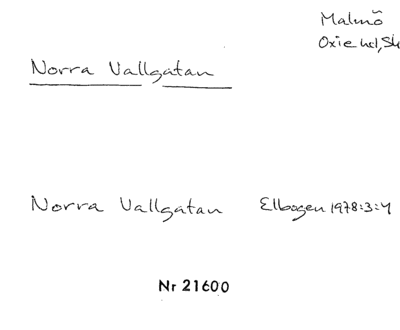 Malmö
Oxie hd, Sk
Norra Vallgatan
Norra Vallgatan Elbogen 1978:3:4
Nr 21600